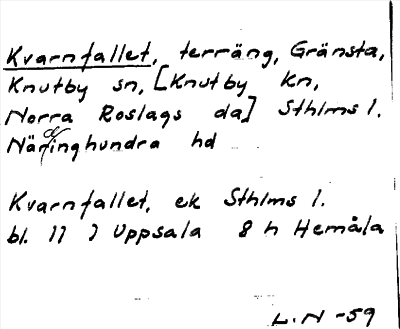 Kvarnfallet, terräng, Gränsta,
Knutby sn, [Knutby kn,
Norra Roslags da] Sthlms l.
Närdinghundra hd
Kvarnfallet, ek Sthlms l.
bl. 11 J Uppsala 8 h Hemåla
L.N -59